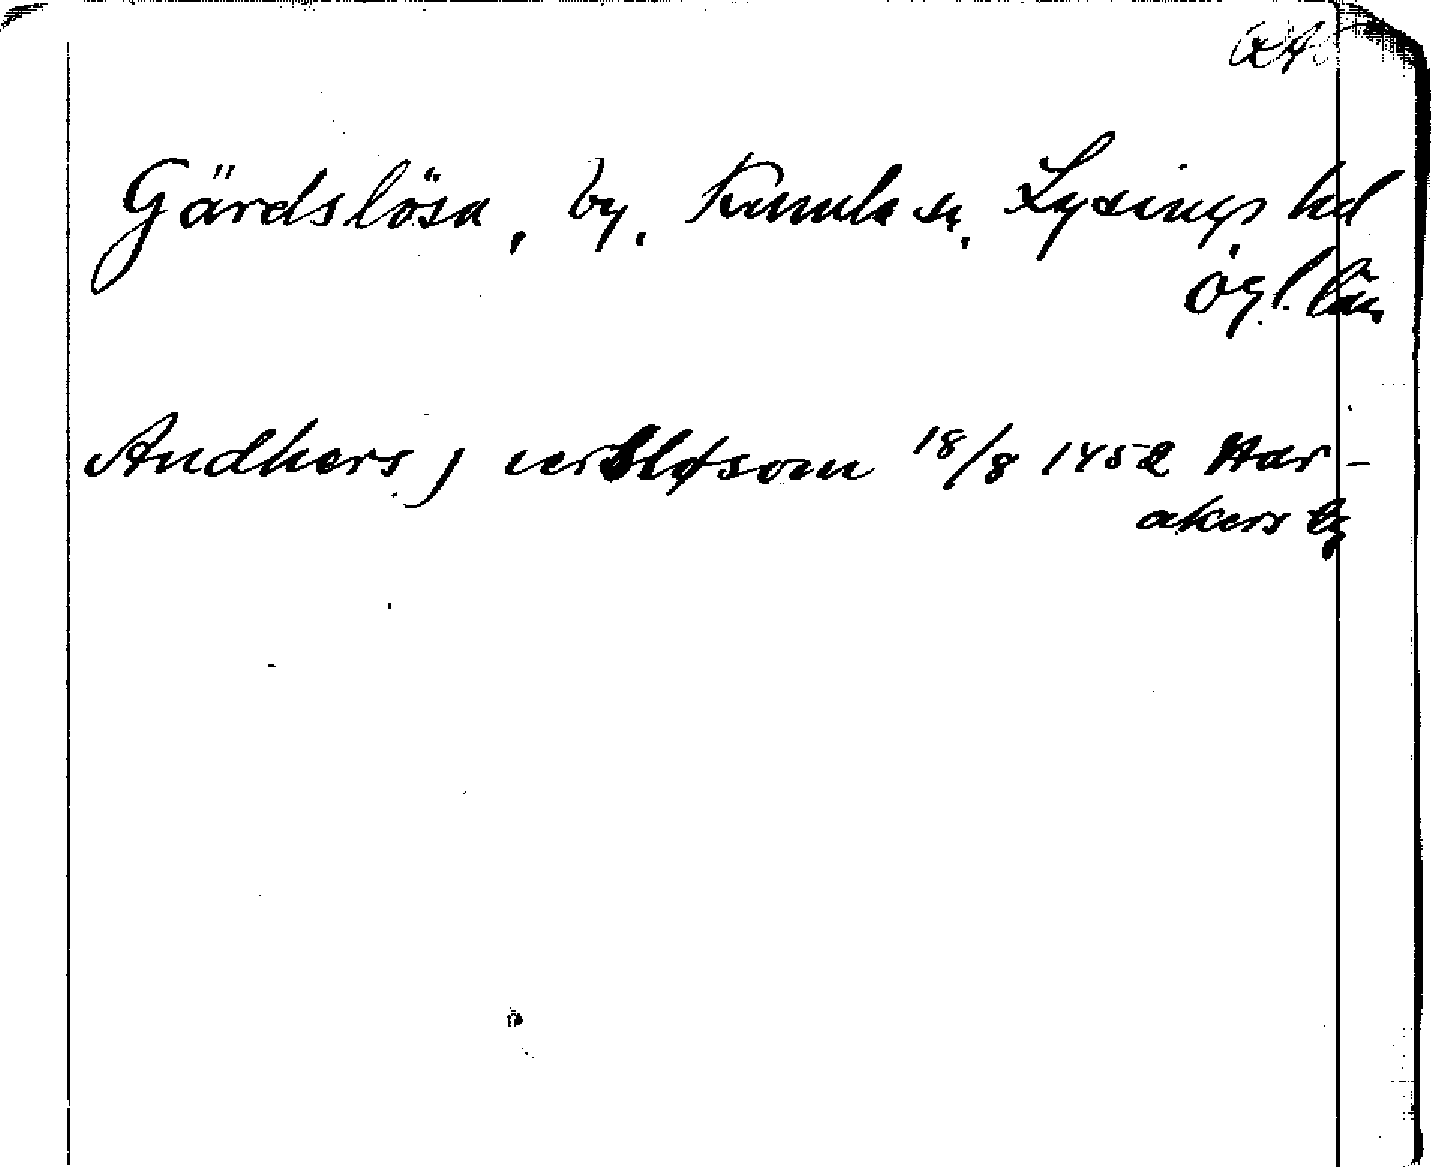 Gärdslösa, by, Kumla sn, Lysings hd
Ögl. län,
Andhers j 18/8 1452 Har-
akers by